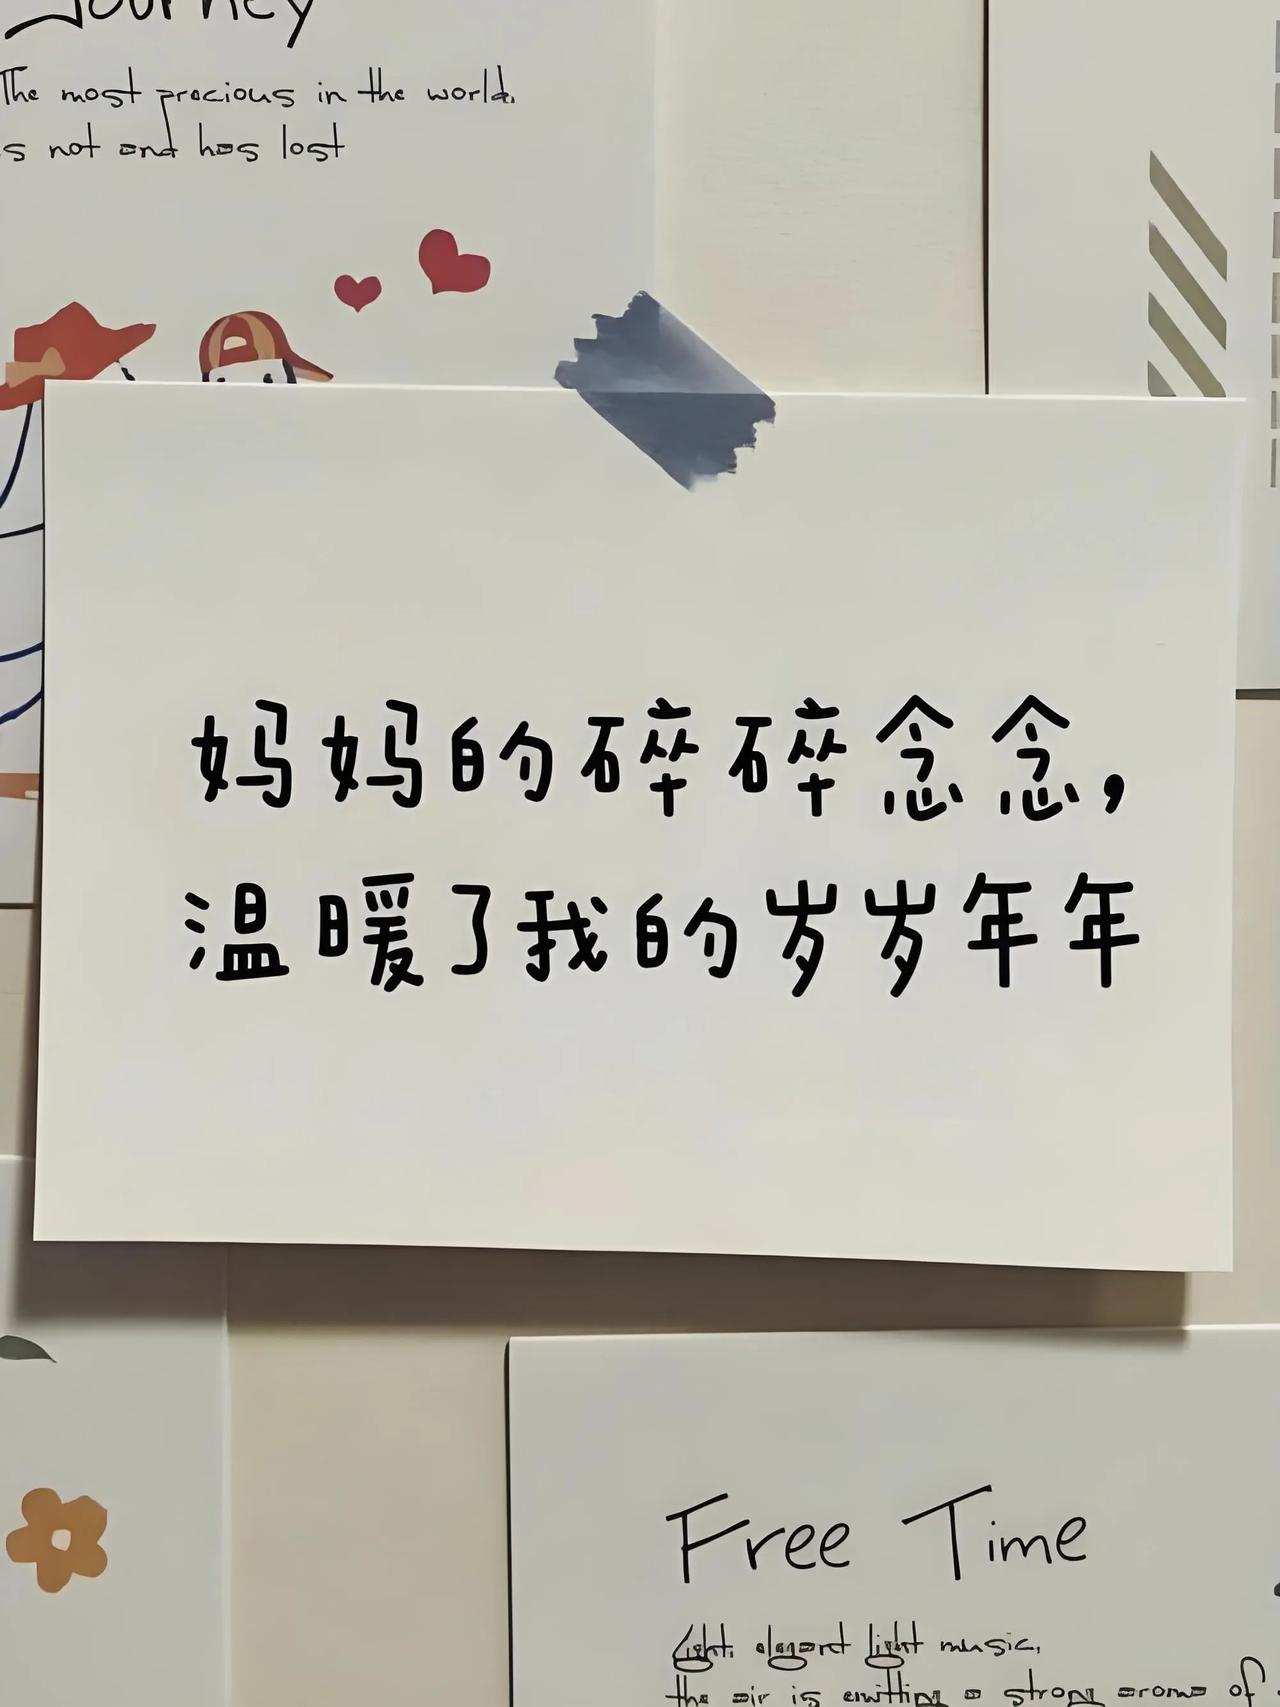 Journey
The most precious in the world.
s not and has lost
妈妈的碎碎念念,
温暖了我的岁岁年年
Free Time
Light. elegant light music,
the air is emitting a strong aroma of